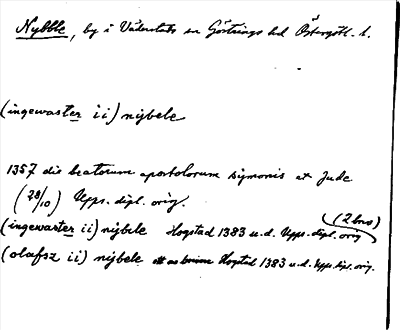 Nybble, by i Väderstads sn Göstrings hd Östergötl. l.
(ingewaster ii) nijbele
1357 die beatorum apostolorum symonis et Jude
(28/10) Upps. dipl. orig.
(2 bns)
(ingewarter ii) nijbele Hogstad 1383 u.d. Upps. dipl. orig
(olafsz ii) nijbele Hogstad 1383 u.d. Upps. dipl. orig.